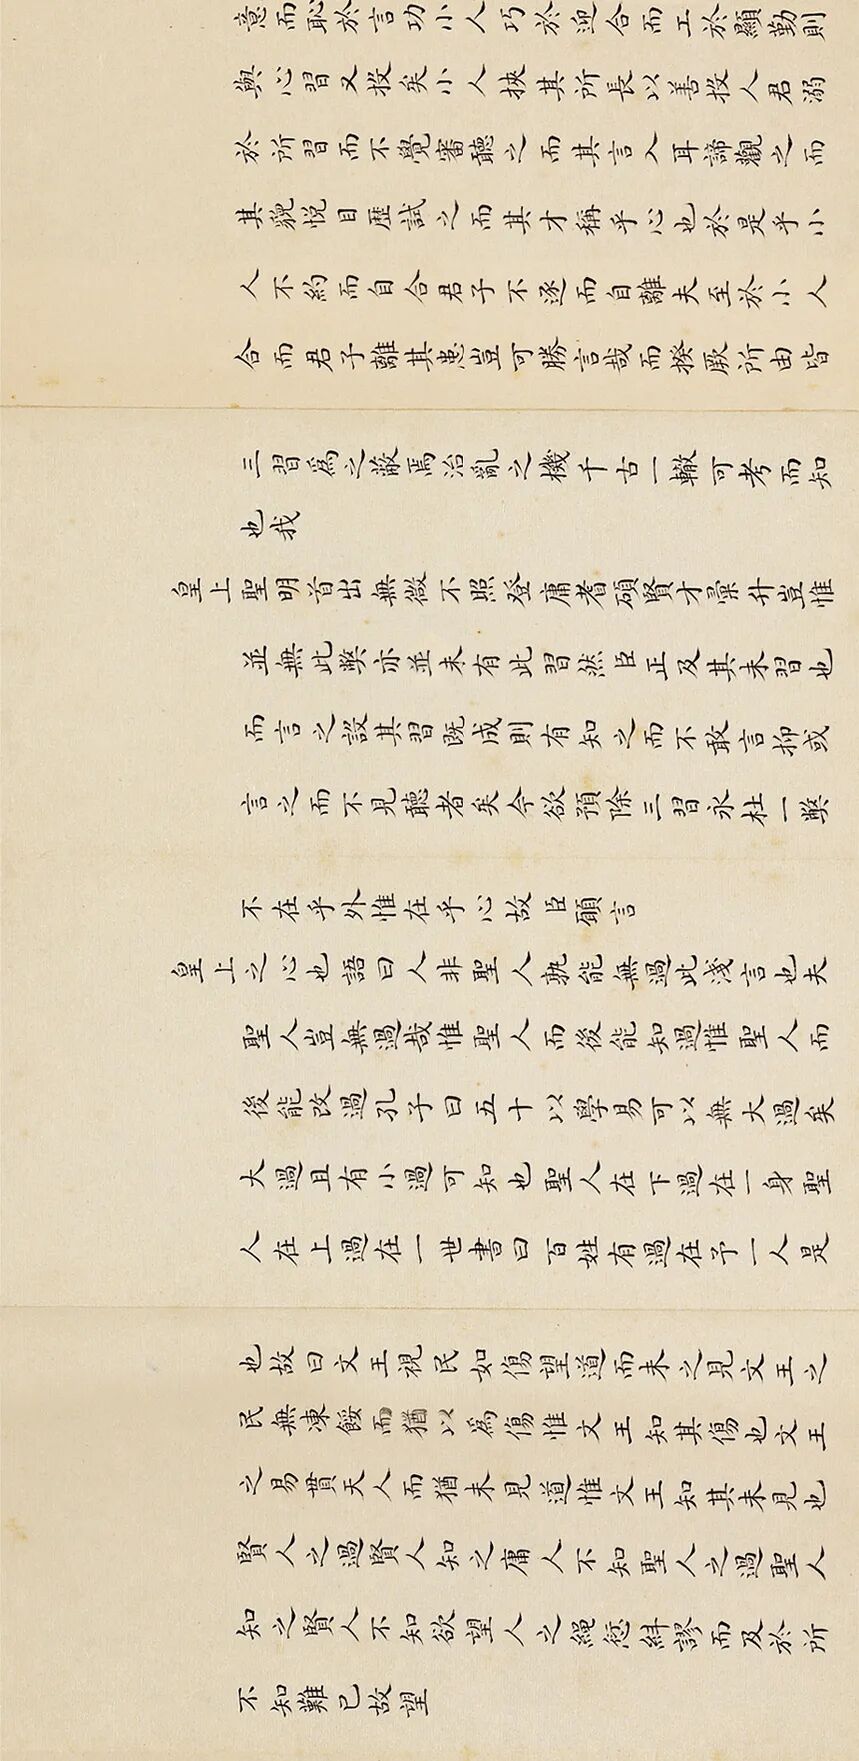 意而恥於言功小人巧於迎合而工於顯勤則
與心習又投矣小人挾其所長以善投人君溺
於所習而不覺審聽之而其言入耳諦觀之而
其貌悅目歷試之而其才稱乎心也於是乎小
人不約而自合君子不逐而自離夫至於小人
合而君子離其患豈可勝言哉而揆厥所由皆
三習為之蔽焉治亂之機千古一轍可考而知
也我
皇上聖明首出無微不照登庸耆碩賢才彙升豈惟
並無此弊亦並未有此習然臣正及其未習也
而言之設其習既成則有知之而不敢言抑或
言之而不見聽者矣今欲預除三習永杜一弊
不在乎外惟在乎心故臣願言
皇上之心也語曰人非聖人孰能無過此淺言也夫
聖人豈無過哉惟聖人而後能知過惟聖人而
後能改過孔子曰五十以學易可以無大過矣
大過且有小過可知也聖人在下過在一身聖
人在上過在一世書曰百姓有過在予一人是
也故曰文王視民如傷望道而未之見文王之
民無凍餒而猶以為傷惟文王知其傷也文王
之易貫天人而猶未見道惟文王知其未見也
賢人之過賢人知之庸人不知聖人之過聖人
知之賢人不知欲望人之繩愆糾謬而及於所
不知難已故望